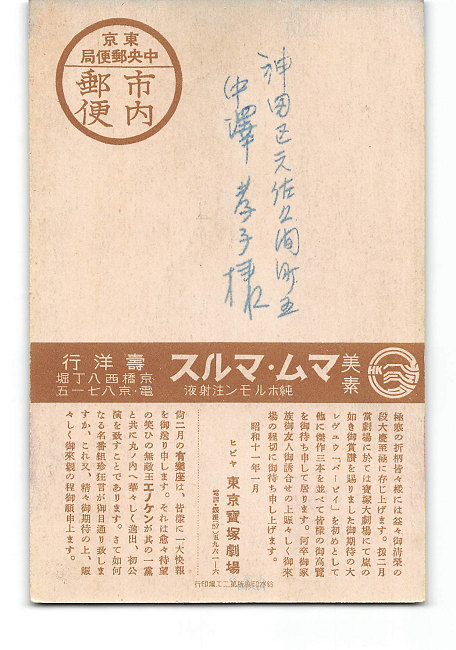 東京
中央郵便局
市内
郵便
神田区元佐久間町五
中澤孝子様
HK
美素
マム・マルス
純ホルモン注射液
壽洋行
京橋西八丁堀
電・京八七一五
極寒の折柄皆々様には益々御清榮の
段大慶至極に存じ上げます。扨二月
當劇場に於ては寶塚大劇場にて嵐の
如き御賞讃を賜りました御期待の大
レヴユウ「バービイ」を初めとして
他に傑作三本を並べて皆様の御高覽
を御待ち申して居ります。何卒御家
族御友人御誘合せの上賑々しく御來
場の程切に御待ち申し上げます。
昭和十一年一月
ヒビヤ 東京寶塚劇場
電話・銀座57・五九六一—六
尚二月の有樂座は、皆様に一大快報
を御送り申します。それは愈々待望
の笑ひの無敵王エノケンが其の一黨
と共に丸ノ内へ華々しく進出、初公
演を致すことであります。さて如何
なる名番組珍狂言が御目通り致しま
すか、これ又、精々御期待の上、賑
々しく御來觀の程御願申します。